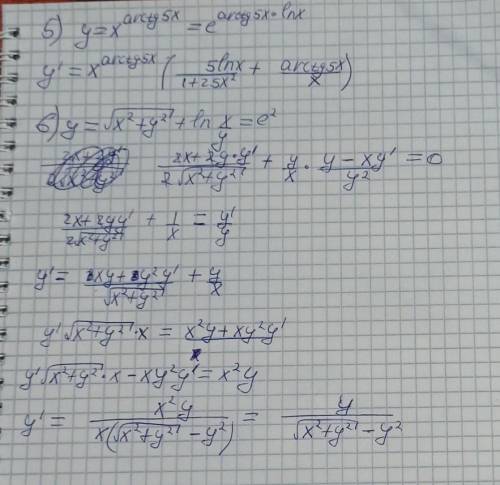 5) y=x^{arctg5x} = e^{arctg5x·lnx}
y' = x^{arctg5x} ( \frac{5lnx}{1+25x²} + \frac{arctg5x}{x} )
6) y = √(x²+y²) + ln \frac{x}{y} = e²
\frac{2x+2y·y'}{2√(x²+y²)} + \frac{y}{x} · \frac{y-xy'}{y²} = 0
\frac{2x+2yy'}{2√(x²+y²)} + \frac{1}{x} = \frac{y'}{y}
y' = \frac{xy+y²y'}{√(x²+y²)} + \frac{y}{x}
y'√(x²+y²)·x = x²y+xy²y'
y'√(x²+y²)·x - xy²y' = x²y
y' = \frac{x²y}{x(√(x²+y²) - y²)} = \frac{y}{√(x²+y²) - y²}